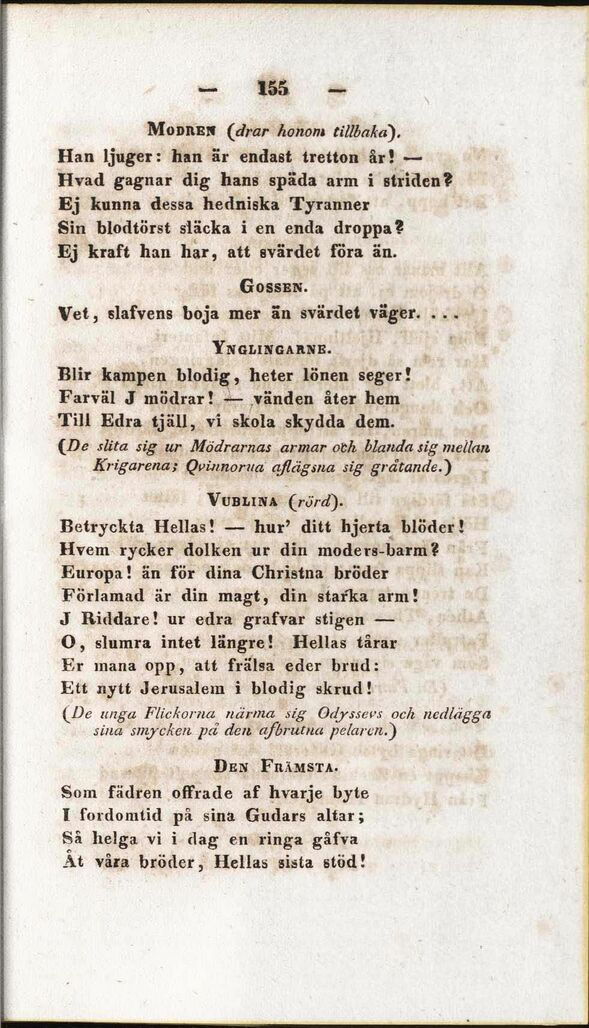 — 155 —
MODREN (drar honom tillbaka).
Han ljuger: han är endast tretton år! —
Hvad gagnar dig hans späda arm i striden?
Ej kunna dessa hedniska Tyranner
Sin blodtörst släcka i en enda droppa?
Ej kraft han har, att svärdet föra än.
GOSSEN.
Vet, slafvens boja mer än svärdet väger. ...
YNGLINGARNE.
Blir kampen blodig, heter lönen seger!
Farväl J mödrar! — vänden åter hem
Till Edra tjäll, vi skola skydda dem.
(De slita sig ur Mödrarnas armar och blanda sig mellan
Krigarena; Qvinnorna aflägsna sig gråtande.)
VUBLINA (rörd).
Betryckta Hellas! — hur' ditt hjerta blöder!
Hvem rycker dolken ur din moders-barm?
Europa! än för dina Christna bröder
Förlamad är din magt, din starka arm!
J Riddare! ur edra grafvar stigen —
O, slumra intet längre! Hellas tårar
Er mana opp, att frälsa eder brud:
Ett nytt Jerusalem i blodig skrud!
(De unga Flickorna närma sig Odyssevs och nedlägga
sina smycken på den afbrutna pelaren.)
DEN FRÄMSTA.
Som fädren offrade af hvarje byte
I fordomtid på sina Gudars altar;
Så helga vi i dag en ringa gåfva
Åt våra bröder, Hellas sista stöd!